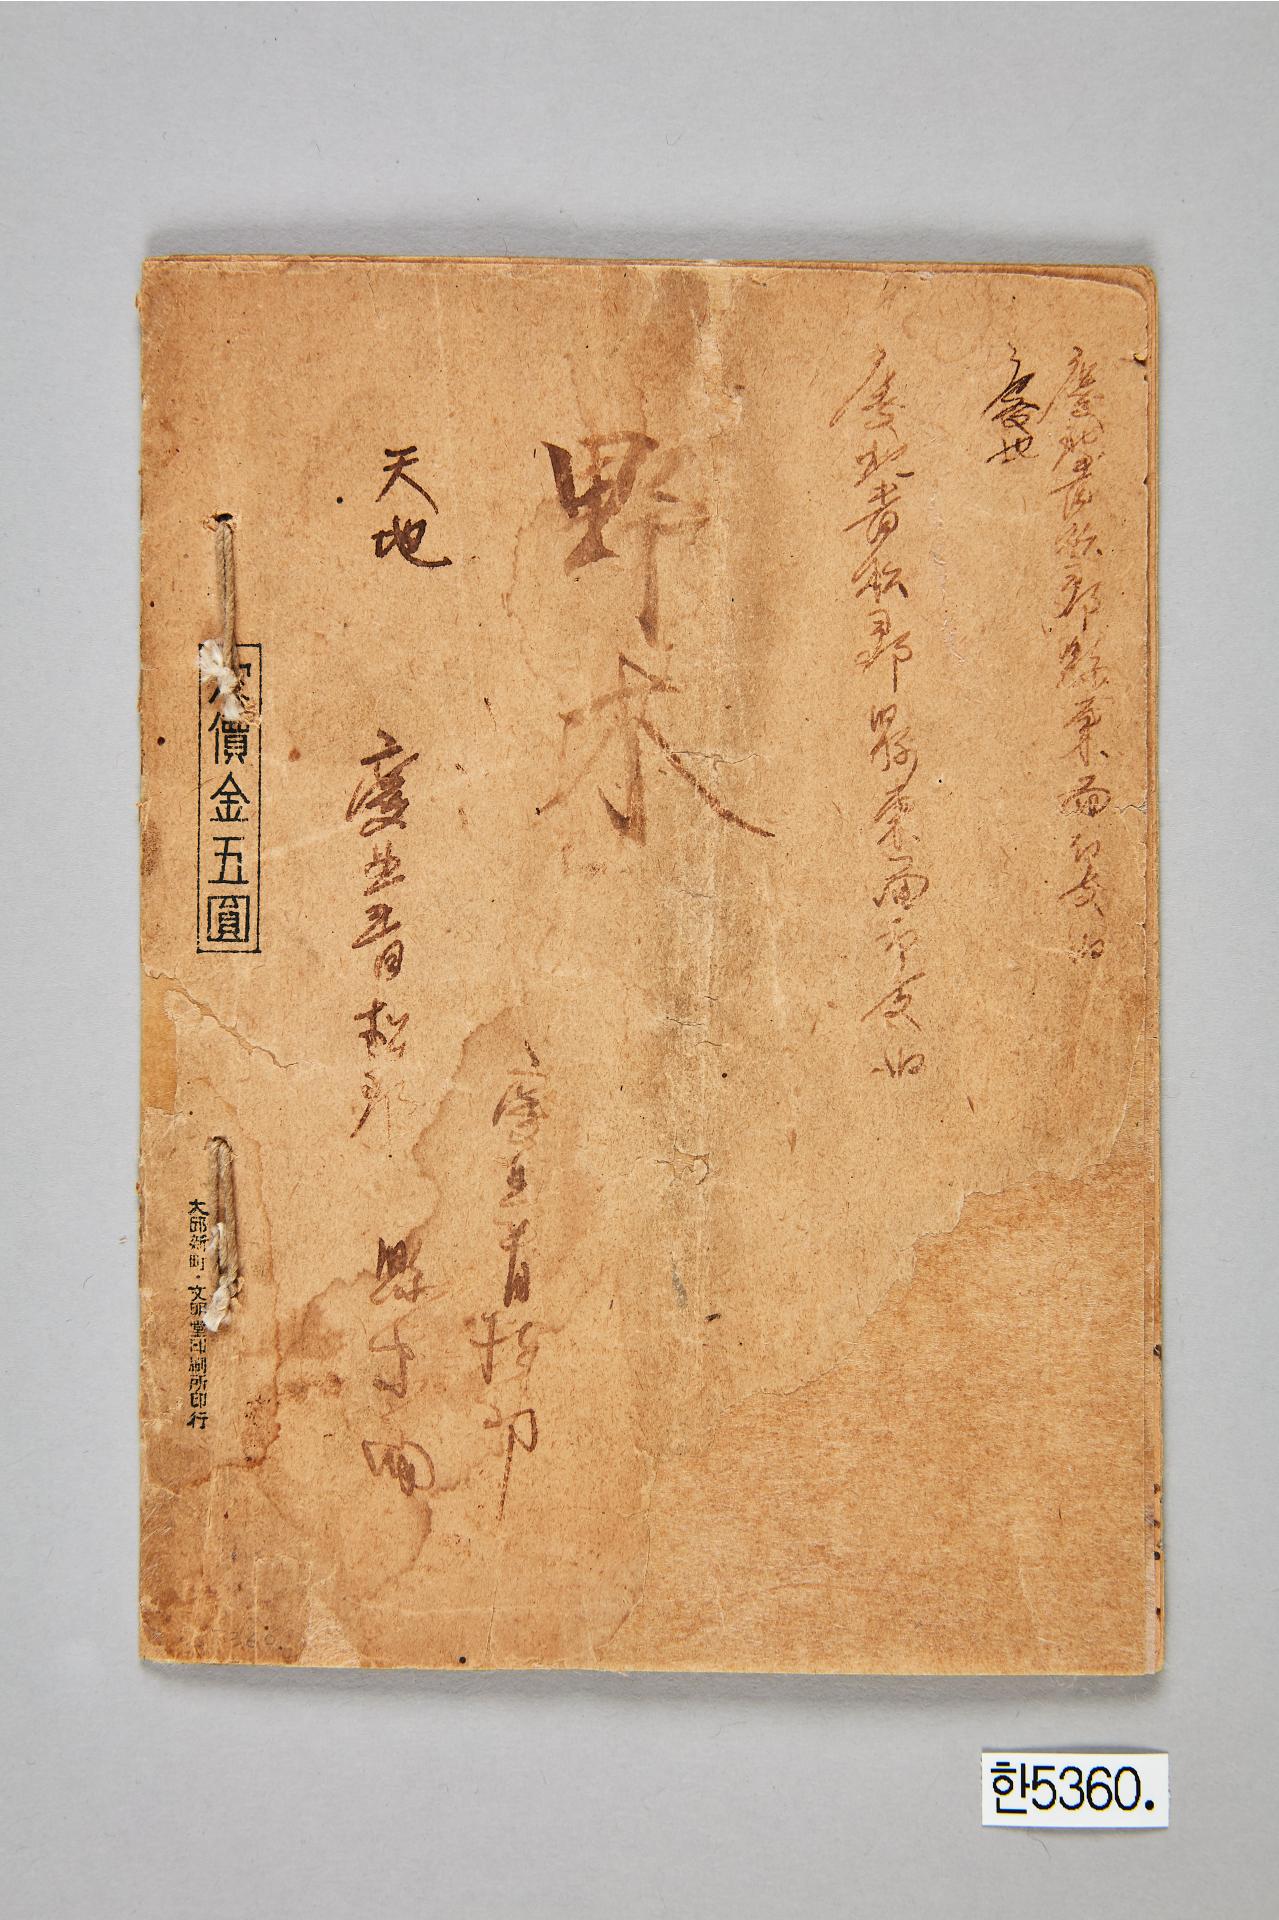 慶北青松郡縣東面印支洞
慶北
慶北青松郡縣東面印支洞
野木
慶北青松郡
天地
慶北青松郡 縣東面
定價金五圓
大邱新町·文明堂印刷所印行
한5360.